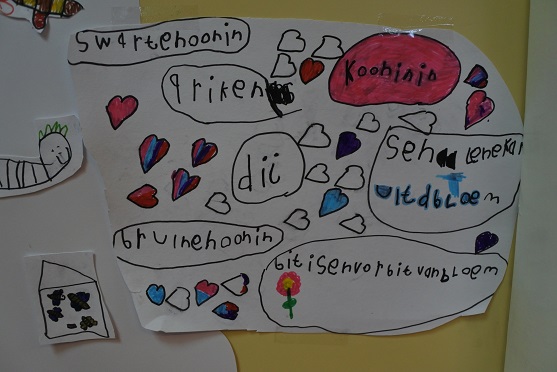 swartehoonin
Koohinin
qriken
dii
seh lenekan
uitdbloem
bruinehoonin
bitisenvorbitvanbloem